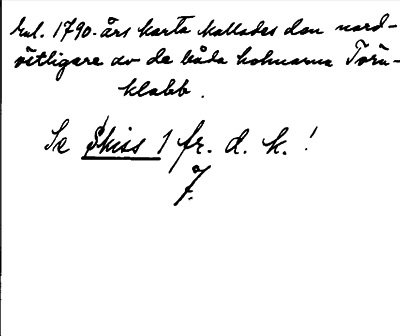 Enl. 1790-års karta kallades den nord-
östligare av de båda holmarna Torn-
klabb.
Se Skiss 1 fr. d. k.!
7.